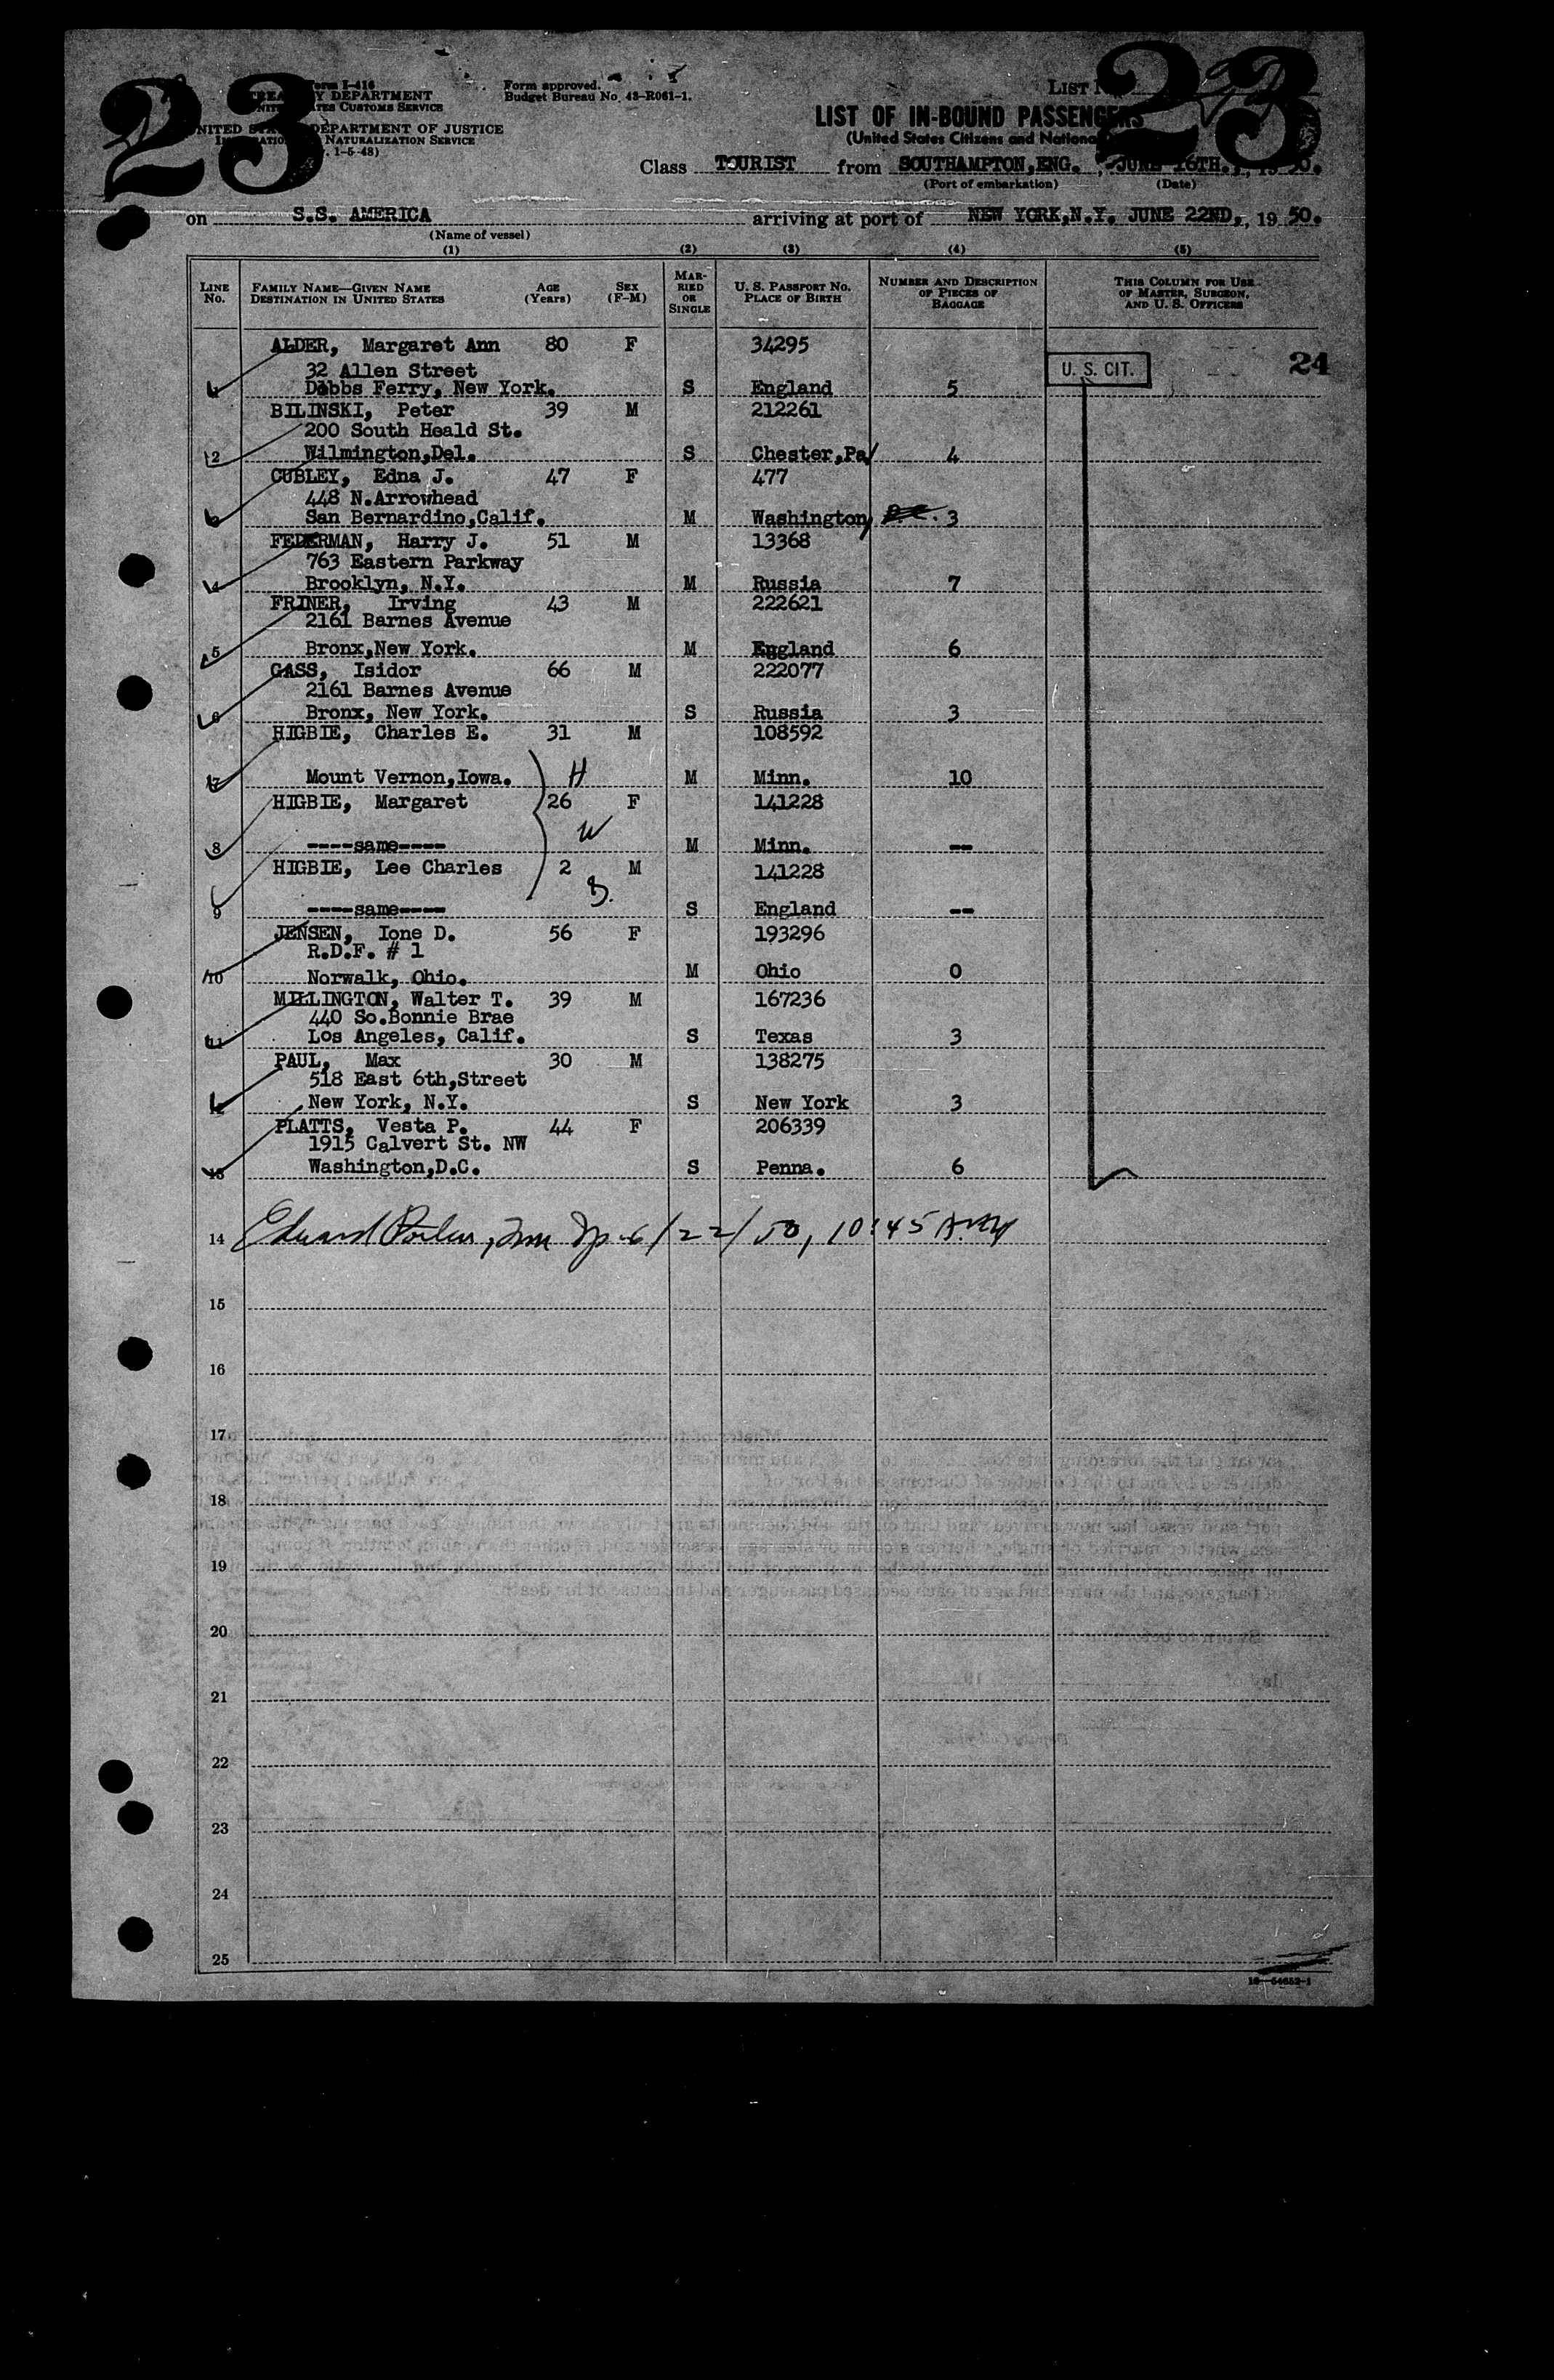 23
23
Form I-416
TREASURY DEPARTMENT
UNITED STATES CUSTOMS SERVICE
UNITED STATES DEPARTMENT OF JUSTICE
IMMIGRATION AND NATURALIZATION SERVICE
1-5-48)
Form approved.
Budget Bureau No. 43-R061-1.
LIST
LIST OF IN-BOUND PASSENGERS
(United States Citizens and Nationals)
Class TOURIST from SOUTHAMPTON,ENG. , JUNE 16TH., 1950.
(Port of embarkation) (Date)
on S.S. AMERICA arriving at port of NEW YORK,N.Y. JUNE 22ND, , 19 50.
(Name of vessel)
(1) (2) (3) (4) (5)
LINE No. FAMILY NAME—GIVEN NAME DESTINATION IN UNITED STATES AGE (Years) SEX (F-M) MARRIED OR SINGLE U. S. PASSPORT NO. PLACE OF BIRTH NUMBER AND DESCRIPTION OF PIECES OF BAGGAGE THIS COLUMN FOR USE OF MASTER, SURGEON, AND U. S. OFFICERS
ALDER, Margaret Ann 80 F 34295
U. S. CIT. 24
32 Allen Street
1 Dobbs Ferry, New York. S England 5
BILINSKI, Peter 39 M 212261
200 South Heald St.
2 Wilmington,Del. S Chester,Pa/ 4
CUBLEY, Edna J. 47 F 477
448 N.Arrowhead
3 San Bernardino,Calif. M Washington, D.C. 3
FEDERMAN, Harry J. 51 M 13368
763 Eastern Parkway
4 Brooklyn, N.Y. M Russia 7
FRINER, Irving 43 M 222621
2161 Barnes Avenue
5 Bronx,New York. M England 6
GASS, Isidor 66 M 222077
2161 Barnes Avenue
6 Bronx, New York. S Russia 3
HIGBIE, Charles E. 31 M 108592
7 Mount Vernon,Iowa. H M Minn. 10
HIGBIE, Margaret 26 F 141228
W
8 ----same---- M Minn. --
HIGBIE, Lee Charles 2 M 141228
9 ----same---- S England --
JENSEN, Ione D. 56 F 193296
R.D.F. # 1
10 Norwalk, Ohio. M Ohio 0
MILLINGTON, Walter T. 39 M 167236
440 So.Bonnie Brae
11 Los Angeles, Calif. S Texas 3
PAUL, Max 30 M 138275
518 East 6th,Street
New York, N.Y. S New York 3
PLATTS, Vesta P. 44 F 206339
1915 Calvert St. NW
13 Washington,D.C. S Penna. 6
14 Edward 6/22/50, 10:45 A.M
15
16
17
18
19
20
21
22
23
24
25
16—54652-1